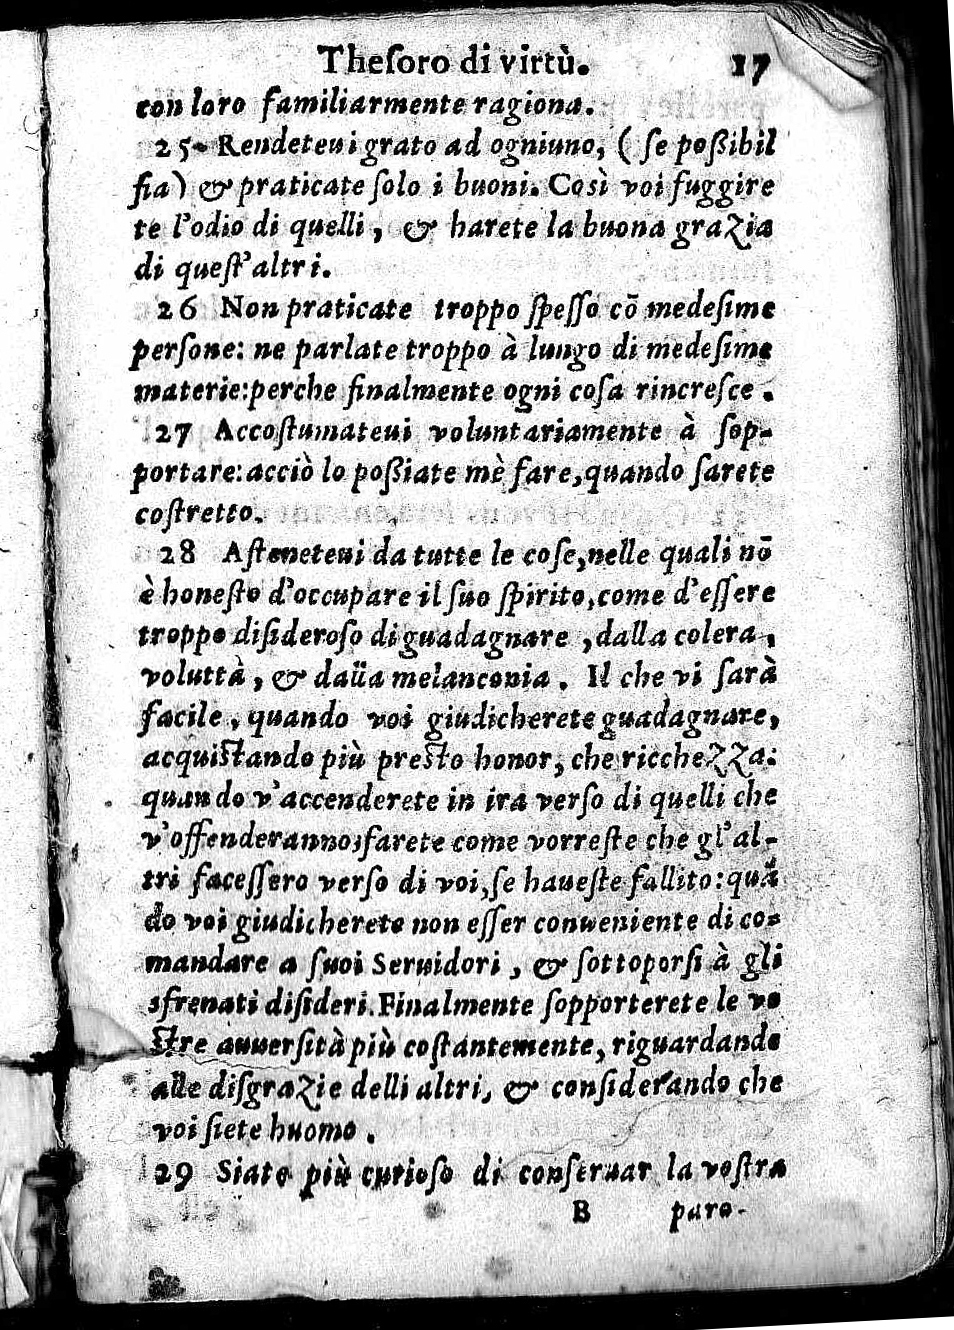 Theſoro di virtù. 17
con loro familiarmente ragiona.
25. Rendeteui grato ad ogniuno, ( ſe poßibil
ſia) & praticate ſolo i buoni. Così voi fuggire
te l'odio di quelli, & harete la buona grazia
di queſt'altri.
26 Non praticate troppo ſpeſſo cõ medeſime
perſone: ne parlate troppo à lungo di medeſime
materie:perche finalmente ogni coſa rincreſce.
27 Accoſtumateui voluntariamente à ſop-
portare:acciò lo poßiate mè fare,quando ſarete
coſtretto.
28 Aſteneteui da tutte le coſe,nelle quali nō
è honeſto d'occupare il ſuo ſpirito,come d'eſſere
troppo diſideroſo di guadagnare ,dalla colera,
voluttà, & dalla melanconia. Il che vi ſarà
facile, quando voi giudicherete guadagnare,
acquiſtando più preſto honor, che ricchezza:
quando v'accenderete in ira verſo di quelli che
v'offenderanno;farete come vorreſte che gl'al-
tri faceſſero verſo di voi,ſe haueſte fallito:quã
do voi giudicherete non eſſer conueniente di co-
mandare a ſuoi Seruidori, & ſottoporſi à gli
sfrenati diſideri.Finalmente ſopporterete le vo
ſtre auuerſità più coſtantemente, riguardando
alle diſgrazie delli altri, & conſiderando che
voi ſiete huomo.
29 Siate più curioſo di conſeruar la voſtra
B paro-